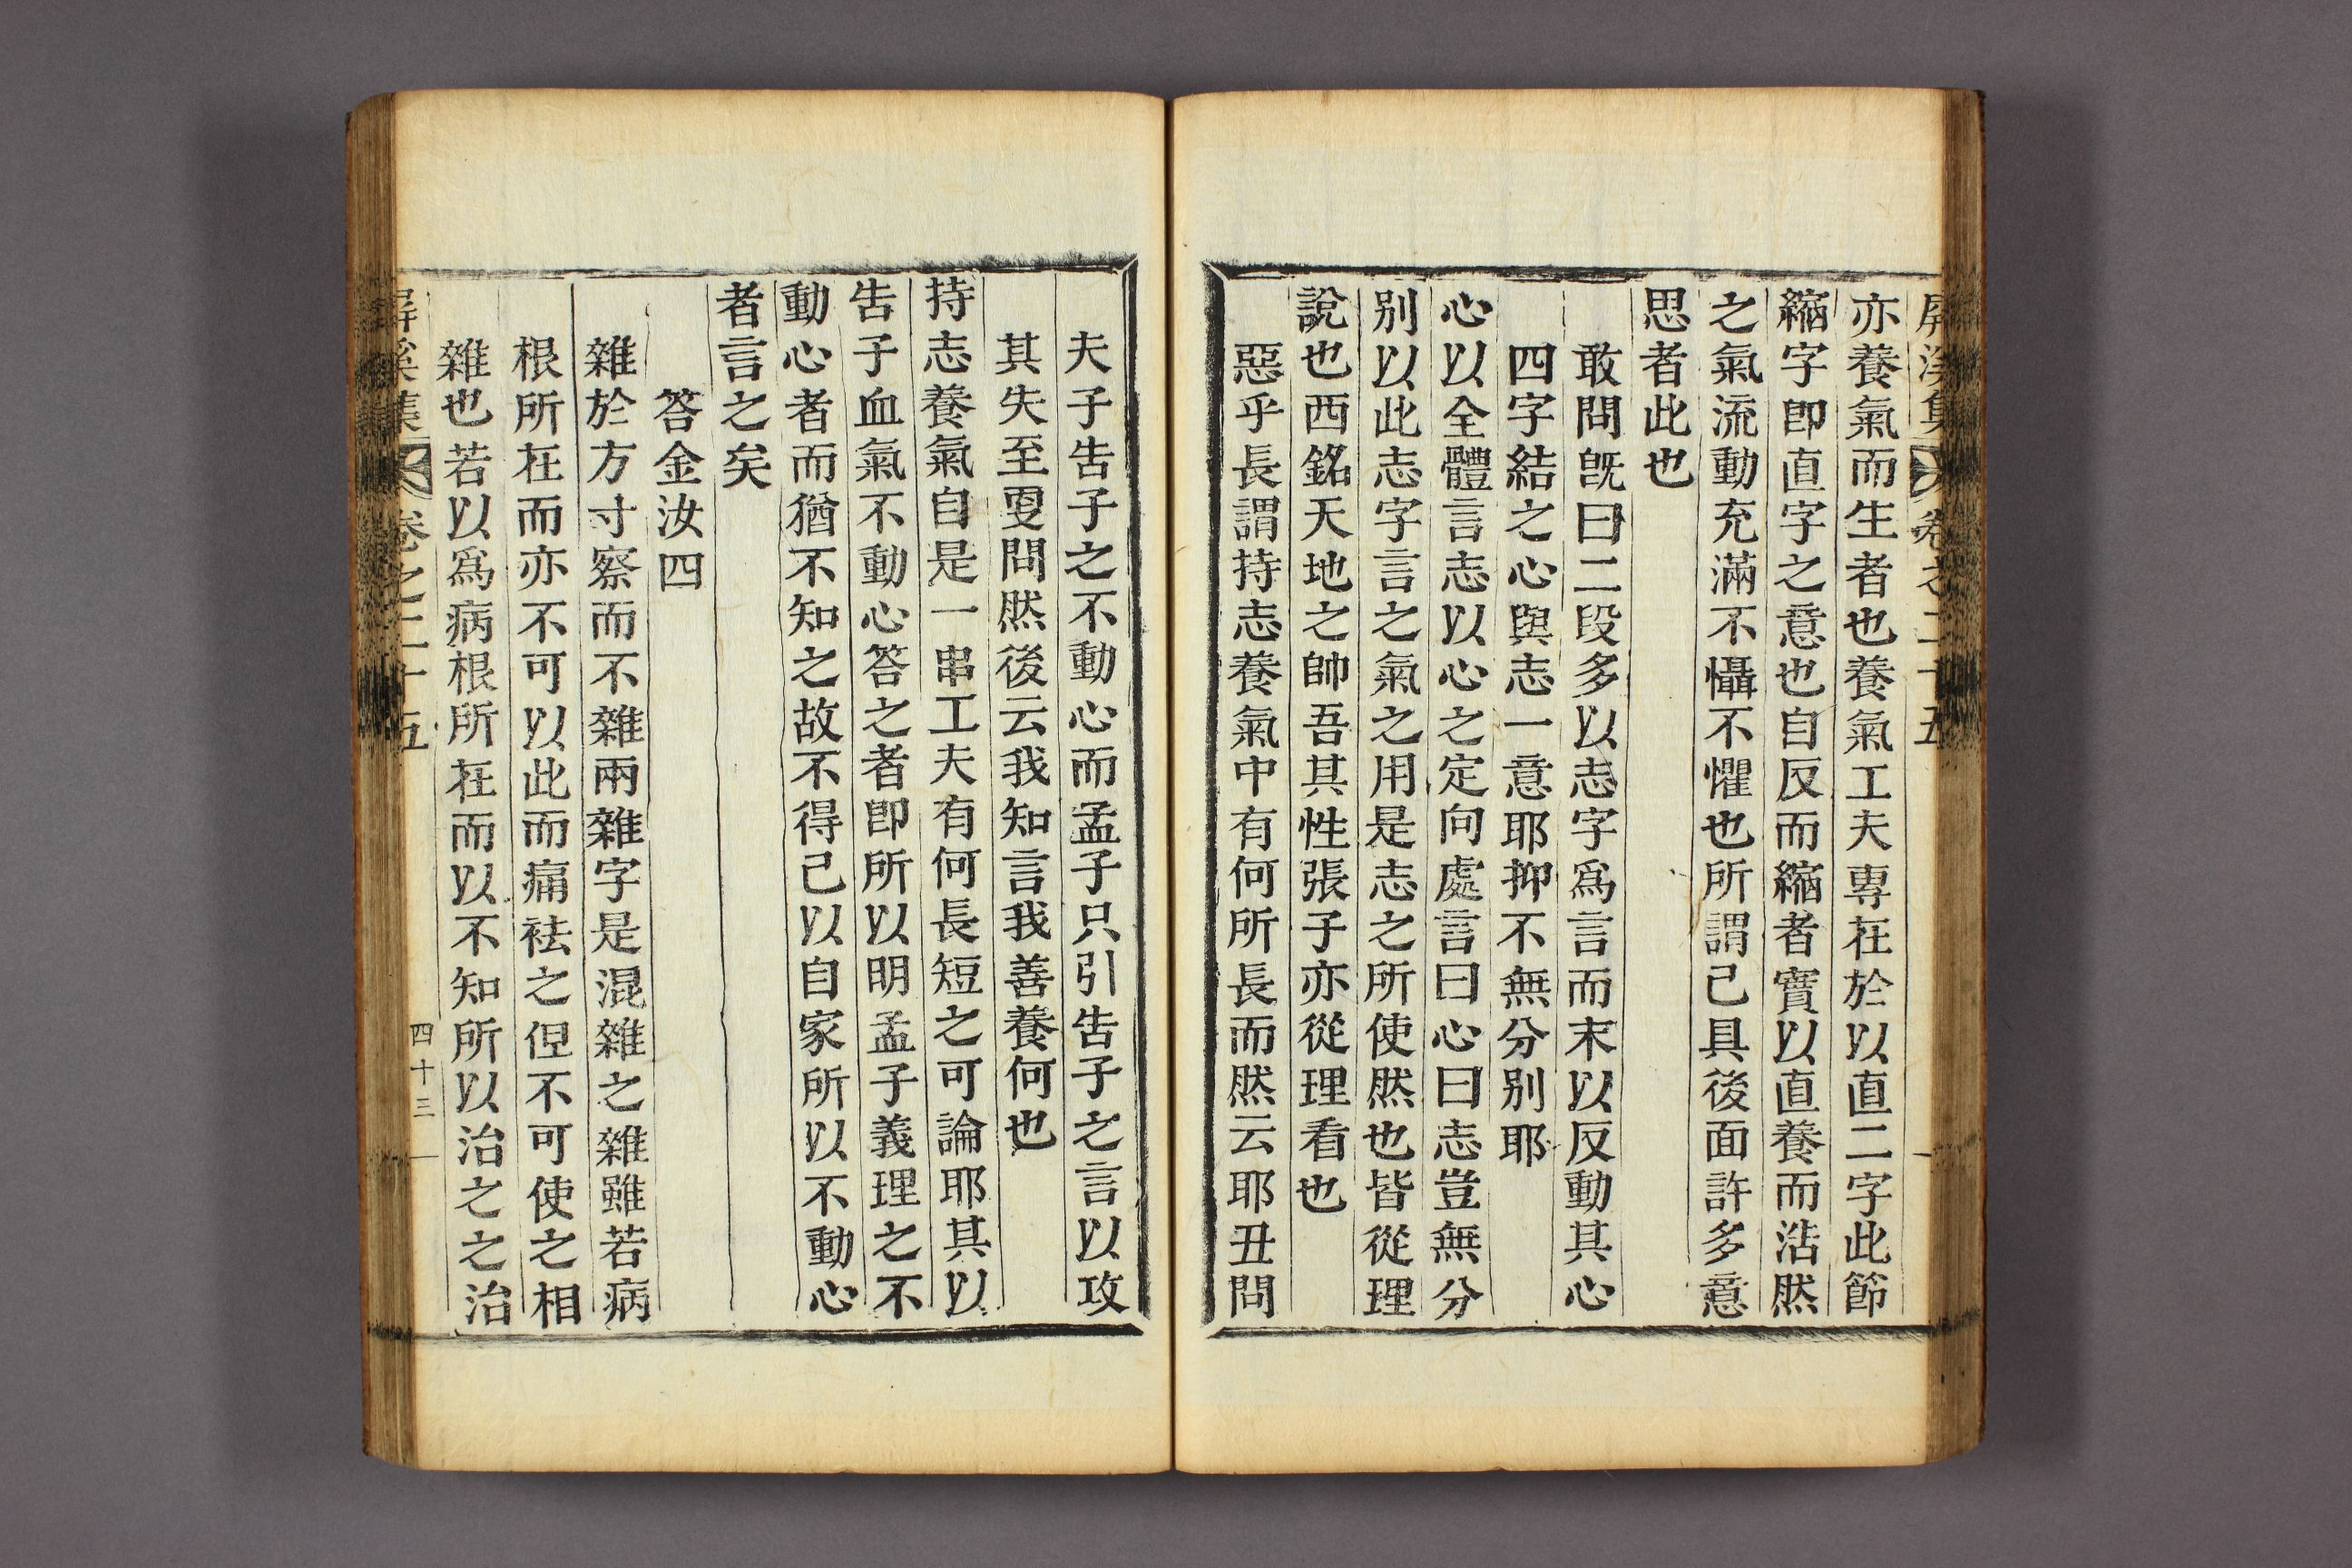 屛溪集 卷之二十五
亦養氣而生者也養氣工夫專在於以直二字此節
縮字卽直字之意也自反而縮者實以直養而浩然
之氣流動充滿不懾不懼也所謂己具後面許多意
思者此也
敢問旣曰二段多以志字爲言而末以反動其心
四字結之心與志一意耶抑不無分别耶
心以全體言志以心之定向處言曰心曰志豈無分
别以此志字言之氣之用是志之所使然也皆從理
說也西銘天地之帥吾其性張子亦從理看也
惡乎長謂持志養氣中有何所長而然云耶丑問
夫子告子之不動心而孟子只引告子之言以攻
其失至更問然後云我知言我善養何也
持志養氣自是一串工夫有何長短之可論耶其以
告子血氣不動心答之者卽所以明孟子義理之不
動心者而猶不知之故不得已以自家所以不動心
者言之矣
答金汝四
雜於方寸察而不雜兩雜字是混雜之雜雖若病
根所在而亦不可以此而痛袪之但不可使之相
雜也若以爲病根所在而以不知所以治之之治
屛溪集 卷之二十五 四十三